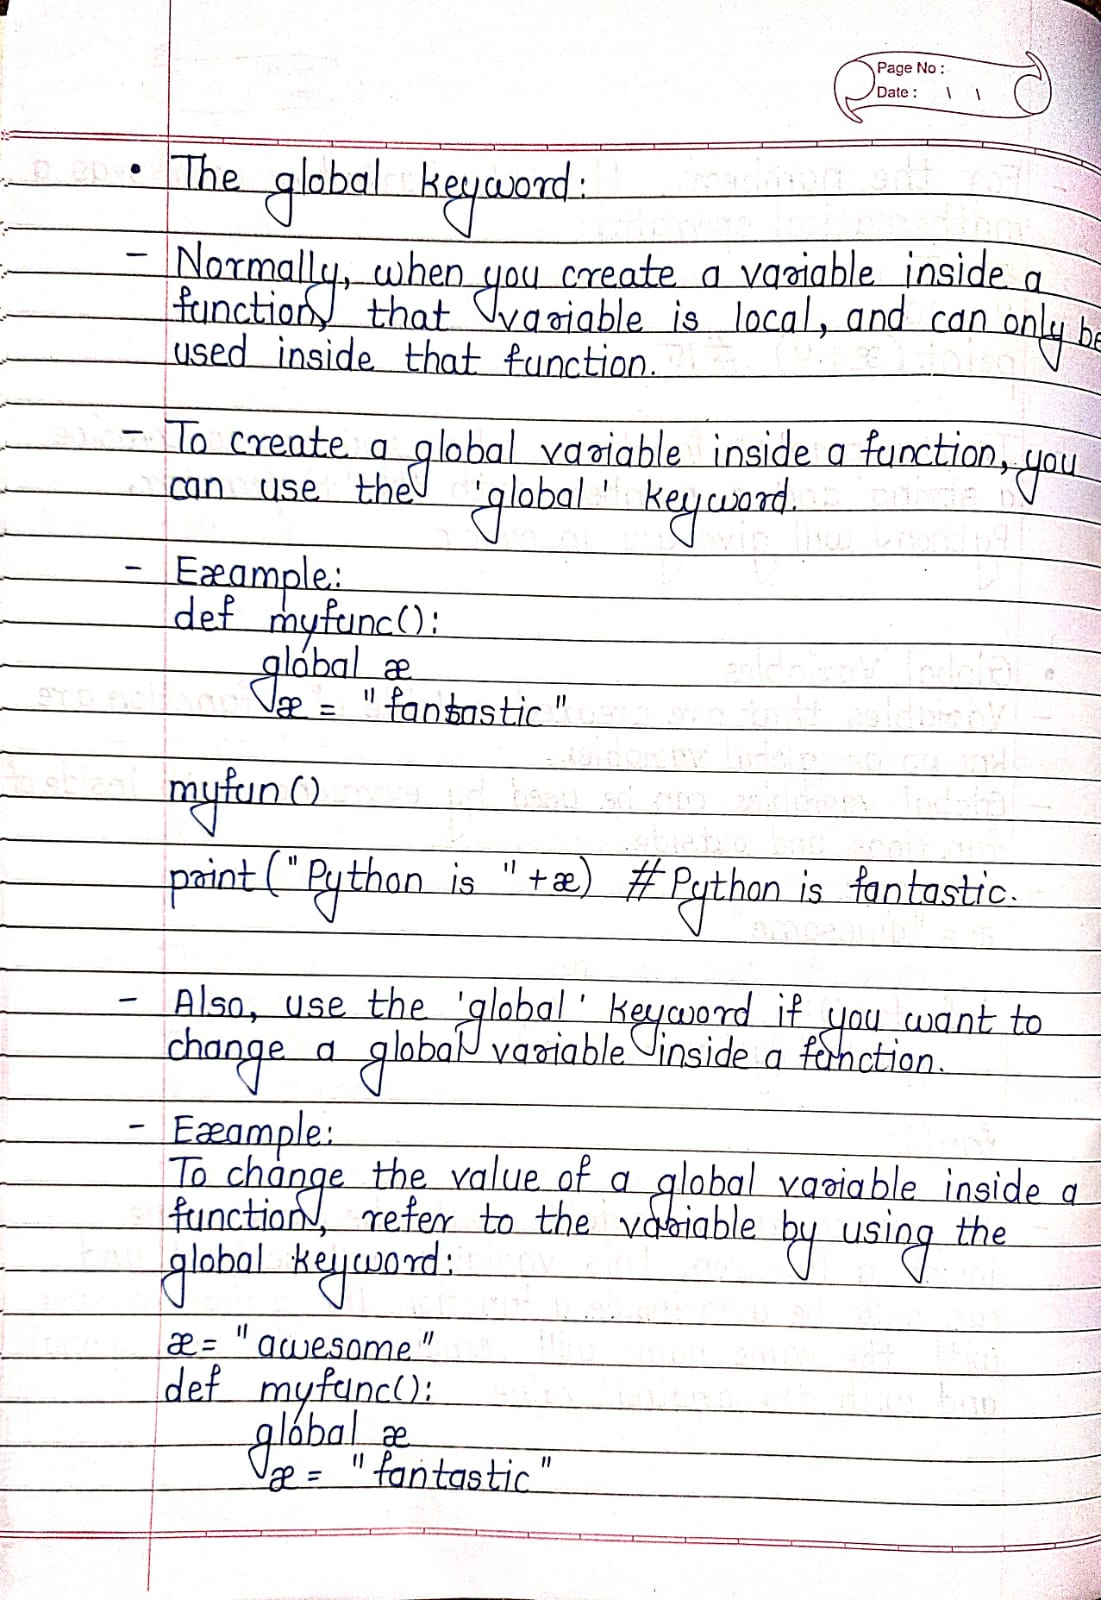 Page No :
Date : \ \
• The global keyword:
- Normally, when you create a variable inside a
function, that variable is local, and can only be
used inside that function.
- To create a global variable inside a function, you
can use the 'global' keyword.
- Example:
def myfunc():
global x
x = "fantastic"
myfun()
print("Python is "+x) #Python is fantastic.
- Also, use the 'global' keyword if you want to
change a global variable inside a function.
- Example:
To change the value of a global variable inside a
function, refer to the variable by using the
global keyword:
x = "awesome"
def myfunc():
global x
x = "fantastic"